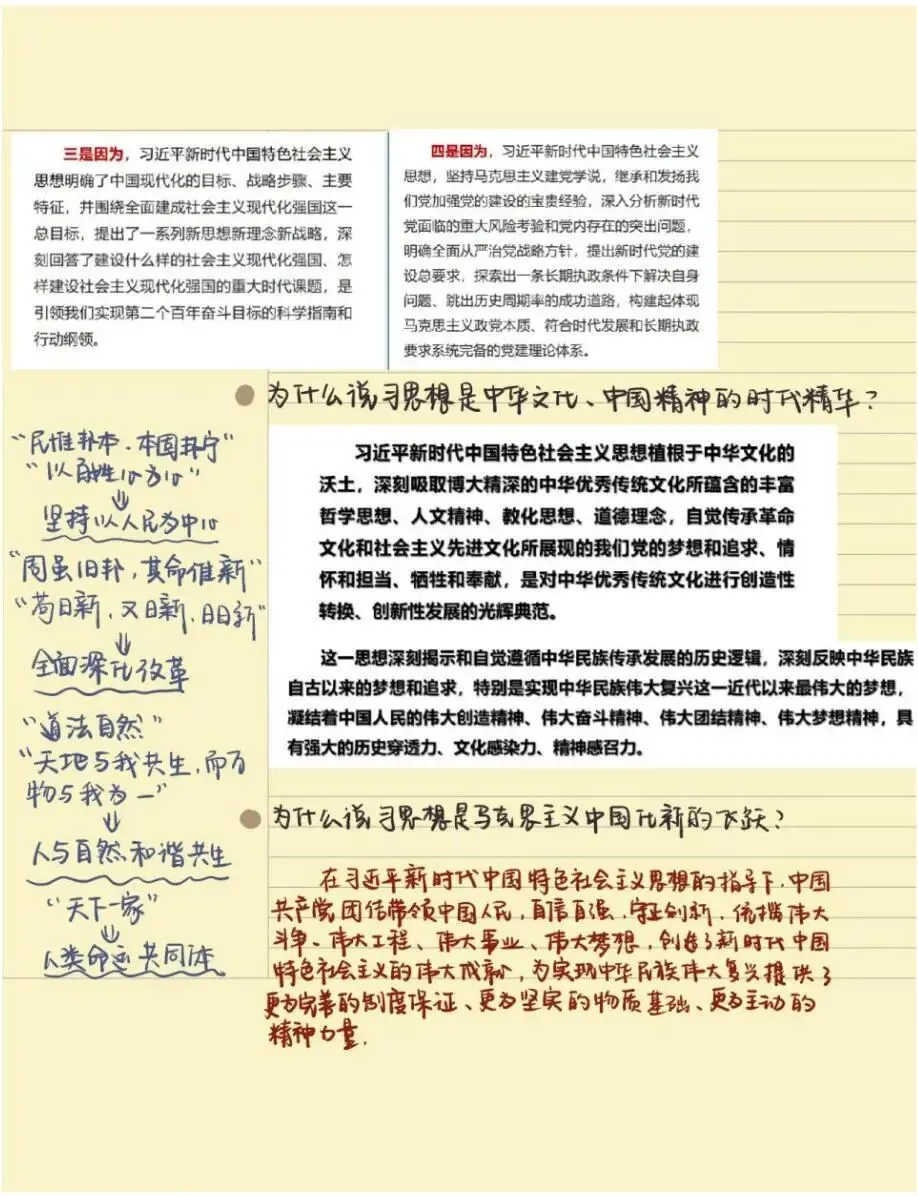 三是因为，习近平新时代中国特色社会主义
思想明确了中国现代化的目标、战略步骤、主要
特征，并围绕全面建成社会主义现代化强国这一
总目标，提出了一系列新思想新理念新战略，深
刻回答了建设什么样的社会主义现代化强国、怎
样建设社会主义现代化强国的重大时代课题，是
引领我们实现第二个百年奋斗目标的科学指南和
行动纲领。
四是因为，习近平新时代中国特色社会主义
思想，坚持马克思主义建党学说，继承和发扬我
们党加强党的建设的宝贵经验，深入分析新时代
党面临的重大风险考验和党内存在的突出问题，
明确全面从严治党战略方针，提出新时代党的建
设总要求，探索出一条长期执政条件下解决自身
问题、跳出历史周期率的成功道路，构建起体现
马克思主义政党本质、符合时代发展和长期执政
要求系统完备的党建理论体系。
为什么说习思想是中华文化、中国精神的时代精华？
“民惟邦本，本固邦宁”
“以百姓心为心”
坚持以人民为中心
“周虽旧邦，其命惟新”
“苟日新，又日新，日日新”
全面深化改革
“道法自然”
“天地与我共生，而万
物与我为一”
人与自然和谐共生
“天下一家”
人类命运共同体
习近平新时代中国特色社会主义思想植根于中华文化的
沃土，深刻吸取博大精深的中华优秀传统文化所蕴含的丰富
哲学思想、人文精神、教化思想、道德理念，自觉传承革命
文化和社会主义先进文化所展现的我们党的梦想和追求、情
怀和担当、牺牲和奉献，是对中华优秀传统文化进行创造性
转换、创新性发展的光辉典范。
这一思想深刻揭示和自觉遵循中华民族传承发展的历史逻辑，深刻反映中华民族
自古以来的梦想和追求，特别是实现中华民族伟大复兴这一近代以来最伟大的梦想，
凝结着中国人民的伟大创造精神、伟大奋斗精神、伟大团结精神、伟大梦想精神，具
有强大的历史穿透力、文化感染力、精神感召力。
为什么说习思想是马克思主义中国化新的飞跃？
在习近平新时代中国特色社会主义思想的指导下，中国
共产党团结带领中国人民，自信自强，守正创新，统揽伟大
斗争、伟大工程、伟大事业、伟大梦想，创造了新时代中国
特色社会主义的伟大成就，为实现中华民族伟大复兴提供了
更为完善的制度保证、更为坚实的物质基础、更为主动的
精神力量.